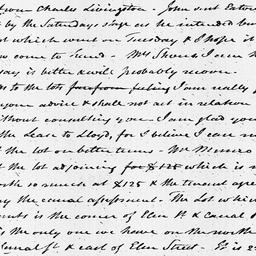 from Charles Livingston - John sent
by the Saturdays stage as he intended but
which went on Tuesday & I hope it
come to hand - Mrs
is better & will probably
to the lots I am really
your advice & shall not act in relation
without consulting you - I am glad you
the Lease to Lloyd, for I believe I can
the lot on better terms - Mr Munro
the lot adjoining for $125 which is
worth so much at $125 & the tenant
the canal assessment. The Lot which
is the corner of Elm St & Canal
is the only one we have on the north
Canal St & east of Elm Street - It is 2